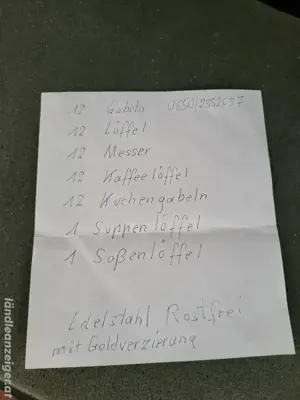 12 Gabeln 0650/2352697
12 Löffel
12 Messer
12 Kaffeelöffel
12 Kuchengabeln
1 Suppenlöffel
1 Soßenlöffel
Edelstahl Rostfrei
mit Goldverzierung
ländleanzeiger.at